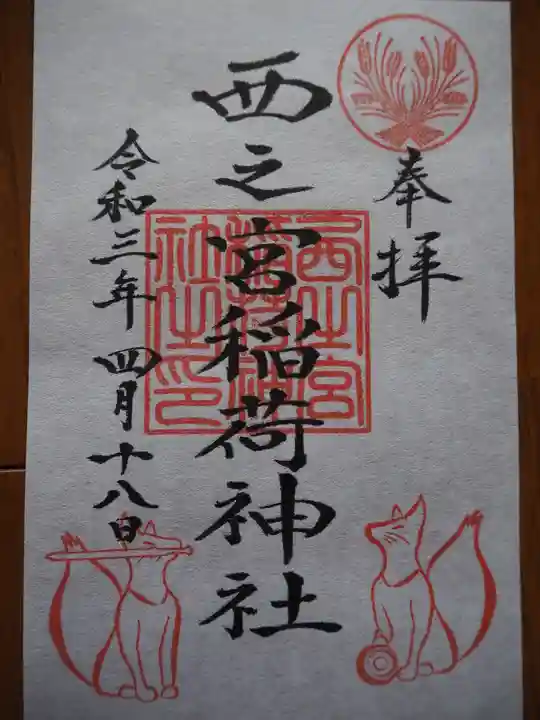 奉拝
西之宮稲荷神社
西之宮
稲荷神
社之印
令和三年四月十八日